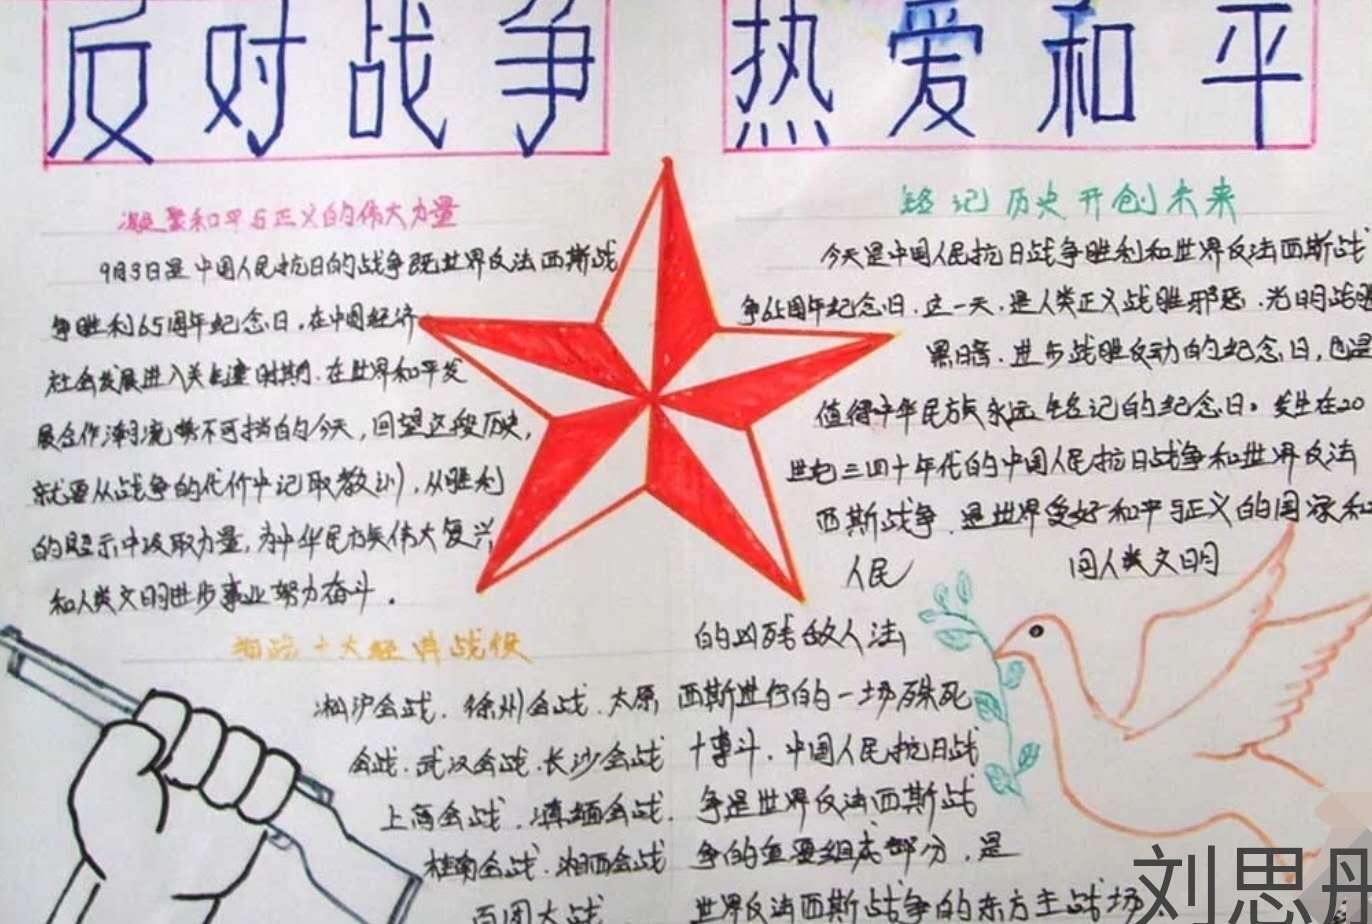 反对战争 热爱和平
凝聚和平与正义的伟大力量
9月3日是中国人民抗日的战争既世界反法西斯战
争胜利65周年纪念日，在中国经济
社会发展进入关键时期，在世界和平发
展合作潮流势不可挡的今天，回望这段历史，
就要从战争的代价中记取教训，从胜利
的启示中汲取力量，为中华民族伟大复兴
和人类文明进步事业努力奋斗．
十大经典战役
淞沪会战．徐州会战．太原
会战．武汉会战．长沙会战
上高会战．滇缅会战．
桂南会战．湘西会战
百团大战
铭记历史开创未来
今天是中国人民抗日战争胜利和世界反法西斯战
争65周年纪念日．这一天．是人类正义战胜邪恶．光明战胜
黑暗．进步战胜反动的纪念日，也是
值得中华民族永远铭记的纪念日。发生在20
世纪三四十年代的中国人民抗日战争和世界反法
西斯战争．是世界爱好和平与正义的国家和
人民 同人类文明
的凶残敌人法
西斯进行的一场殊死
十博斗．中国人民抗日战
争是世界反法西斯战
争的重要组成部分，是
世界反法西斯战争的东方主战场
刘思丹